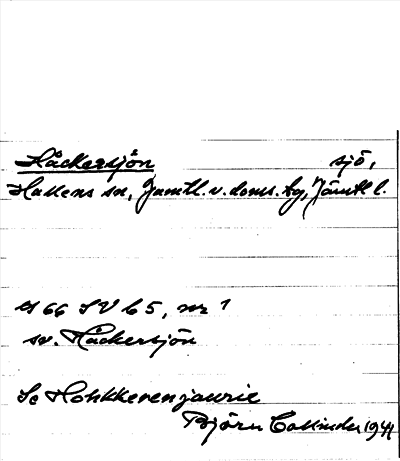 Häckersjön sjö,
Hallens sn, Jämtl. v. doms. tg, Jämtl l.
G 66 SV b 5, nr 1
sv. Häckersjön
Se Hohkkerenjaurie
Björn Collinder 1941